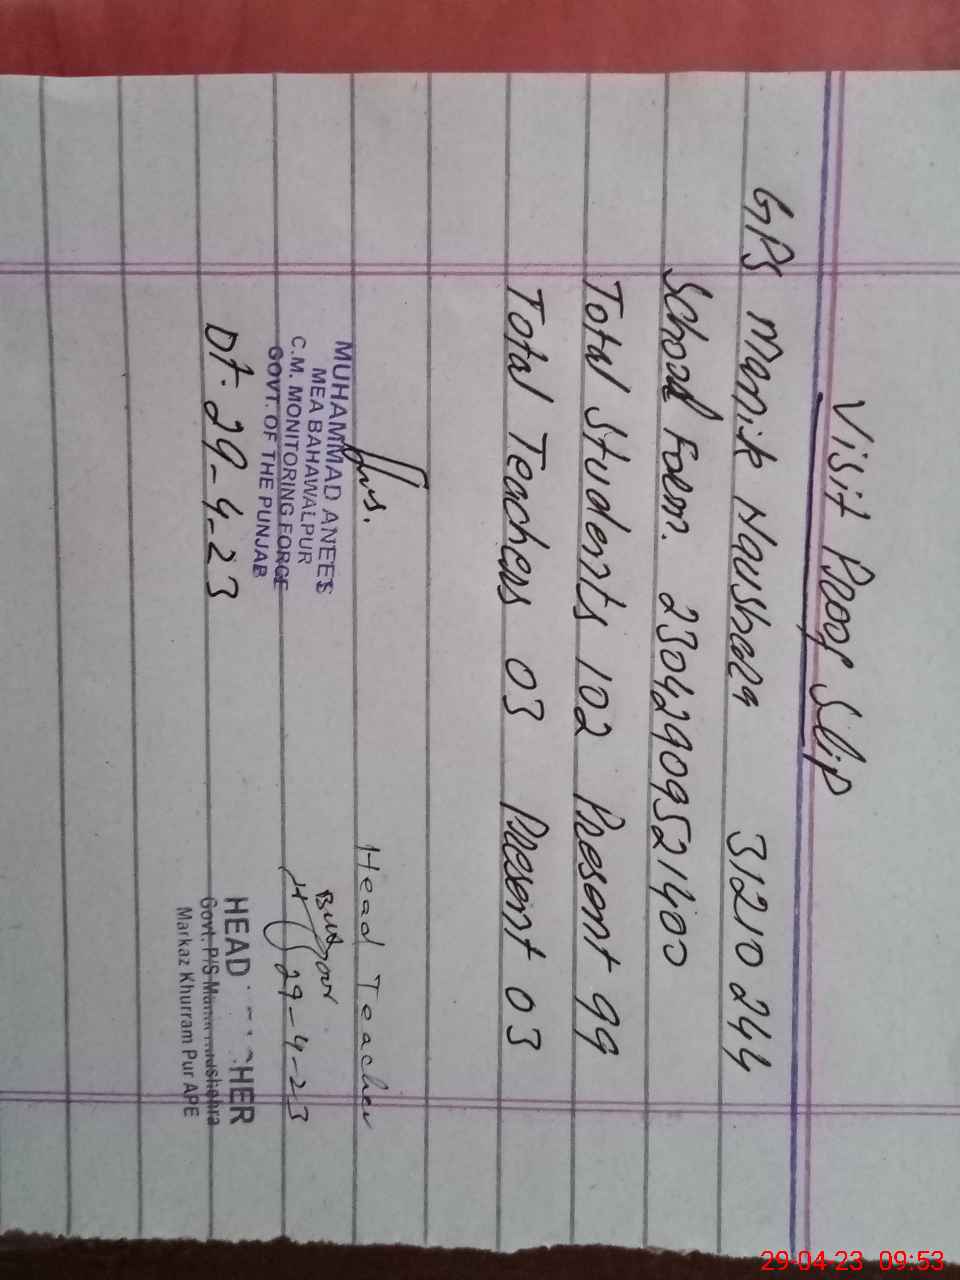 Visit Proof Slip
GPS Manik Naushera 31210244
School Form. 23042909521400
Total Students 102 Present 99
Total Teachers 03 Present 03
MUHAMMAD ANEES
MEA BAHAWALPUR
C.M. MONITORING FORCE
GOVT. OF THE PUNJAB
Dt. 29-4-23
Head Teacher
29-4-23
HEAD
Govt. P/S
Markaz Khurram Pur APE
29-04-23 09:53